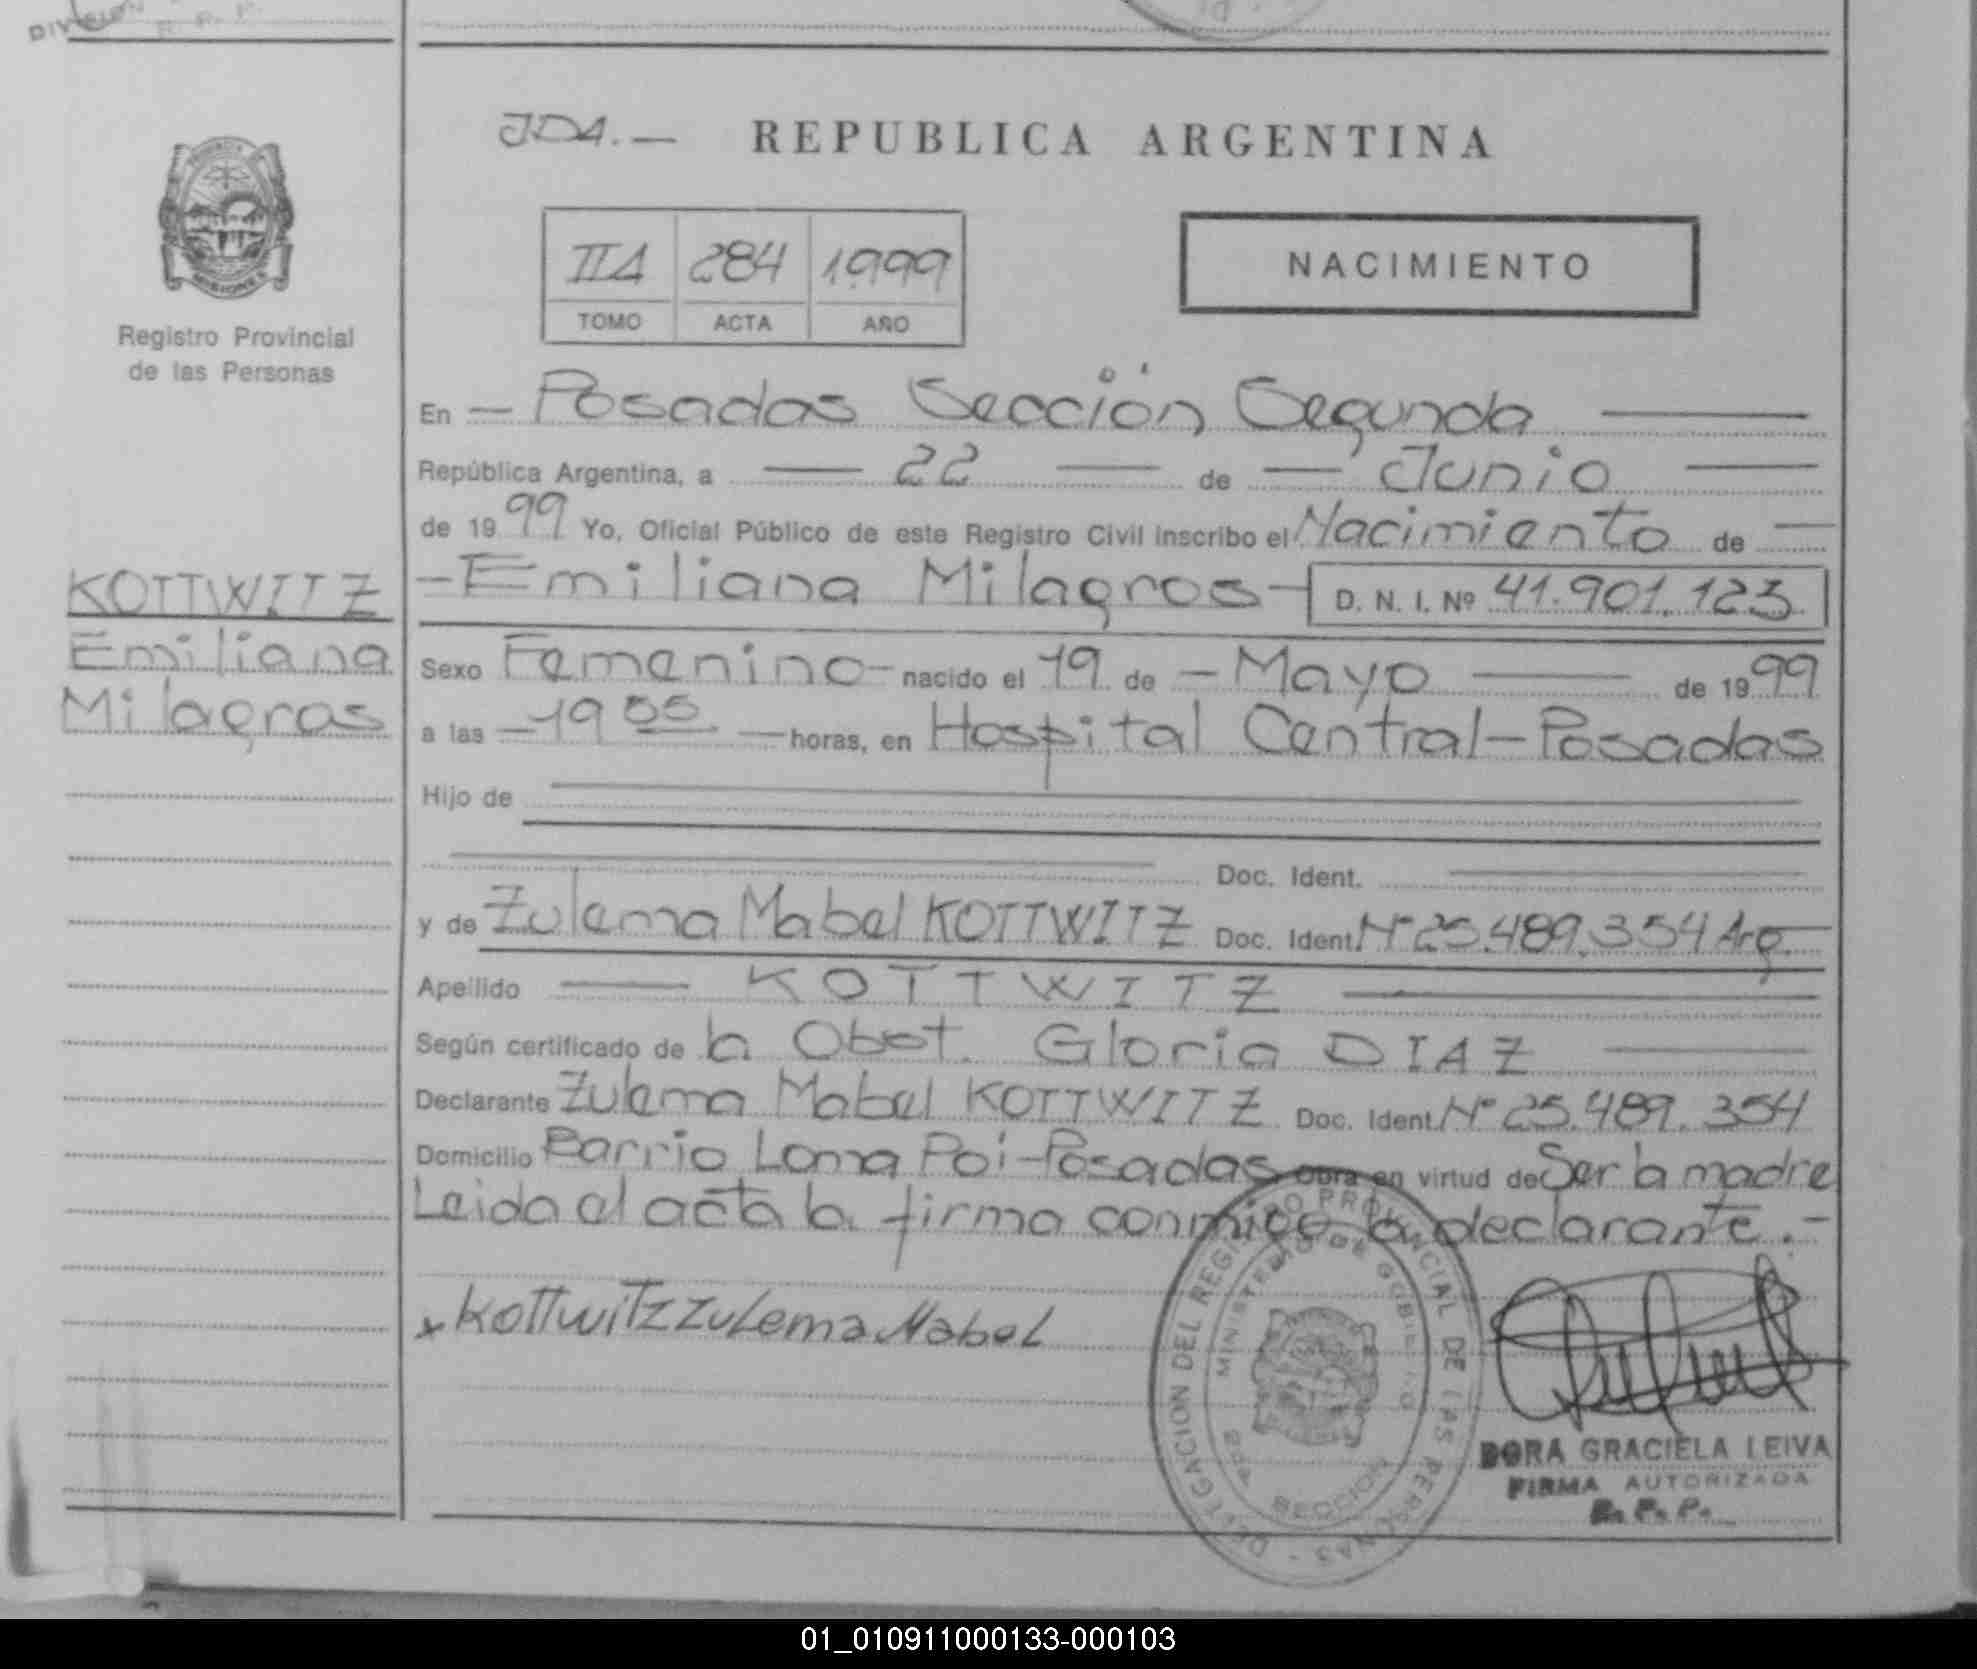 DIVISION
R. P. P.
JDA.—
REPUBLICA ARGENTINA
PROVINCIA
MISIONES
Registro Provincial
de las Personas
IIA 284 1.999
TOMO ACTA AÑO
NACIMIENTO
En — Posadas Sección Segunda —
República Argentina, a — 22 — de — Junio —
de 1999 Yo, Oficial Público de este Registro Civil inscribo el Nacimiento de —
— Emiliana Milagros — D. N. I. Nº 41.901.123
KOTTWITZ
Emiliana
Milagros
Sexo Femenino — nacido el 19 de — Mayo — de 1999
a las — 19 55 — horas, en Hospital Central — Posadas
Hijo de
Doc. Ident.
y de Zulema Mabel KOTTWITZ Doc. Ident. Nº 25.489.354 Arg.
Apellido — KOTTWITZ —
Según certificado de la Obst. Gloria DIAZ —
Declarante Zulema Mabel KOTTWITZ Doc. Ident. Nº 25.489.354
Domicilio Barrio Loma Poi - Posadas Obra en virtud de Ser la madre
Leida el acta la firma conmigo la declarante.-
x Kottwitz Zulema Mabel
DELEGACION DEL REGISTRO PROVINCIAL DE LAS PERSONAS -
MINISTERIO DE GOBIERNO
SECCION
DORA GRACIELA LEIVA
FIRMA AUTORIZADA
R. P. P.
01_010911000133-000103